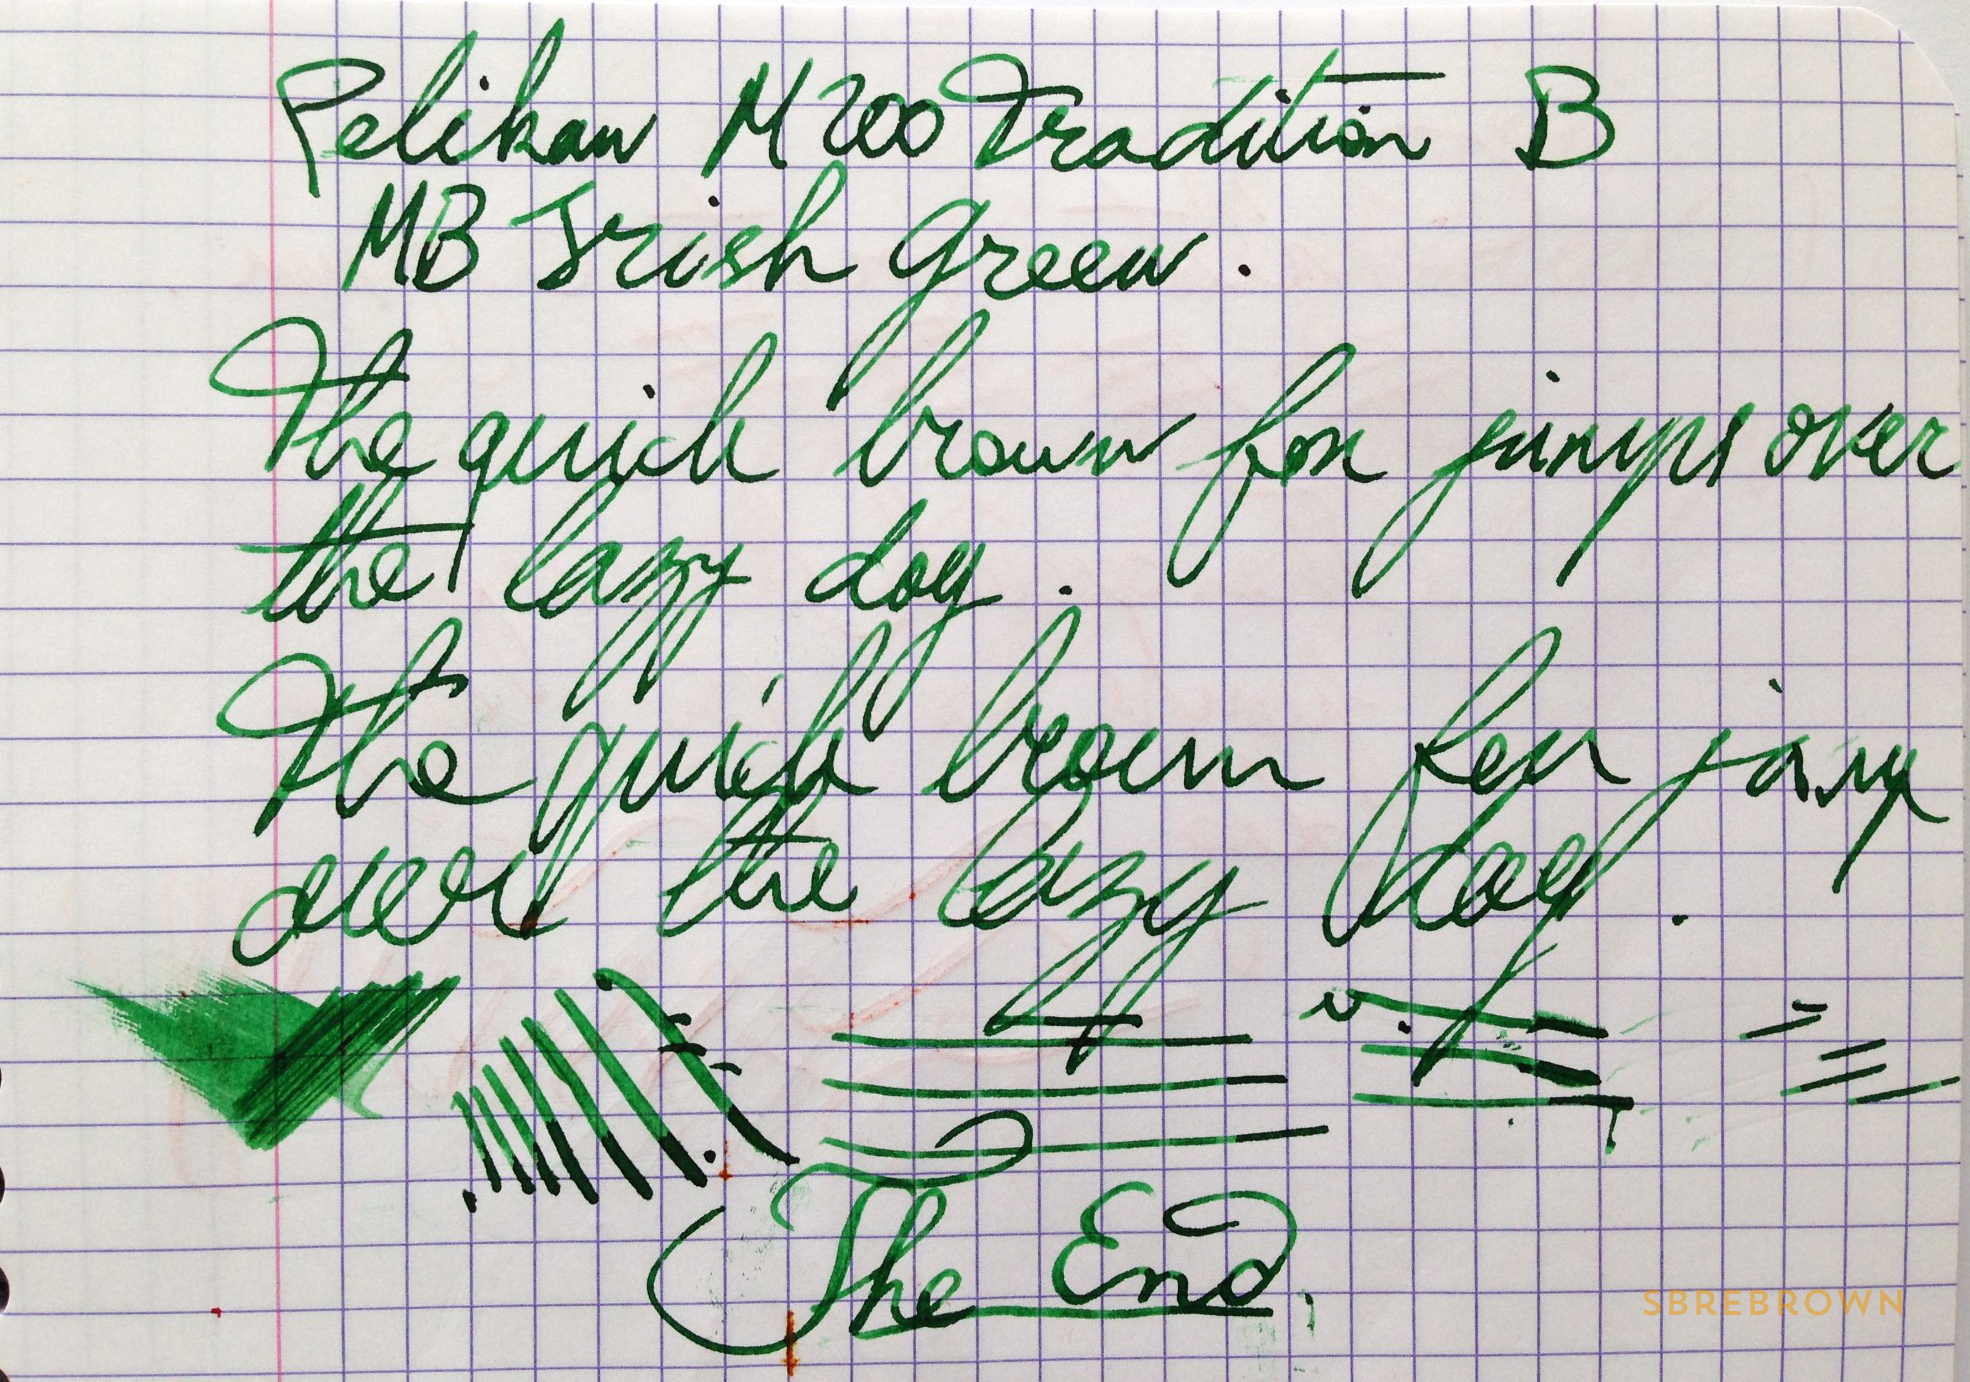 Pelikan M200 Tradition B
MB Irish Green.
The quick brown fox jumps over
the lazy dog.
The quick brown fox jump
over the lazy dog.
The End.
SBREBROWN